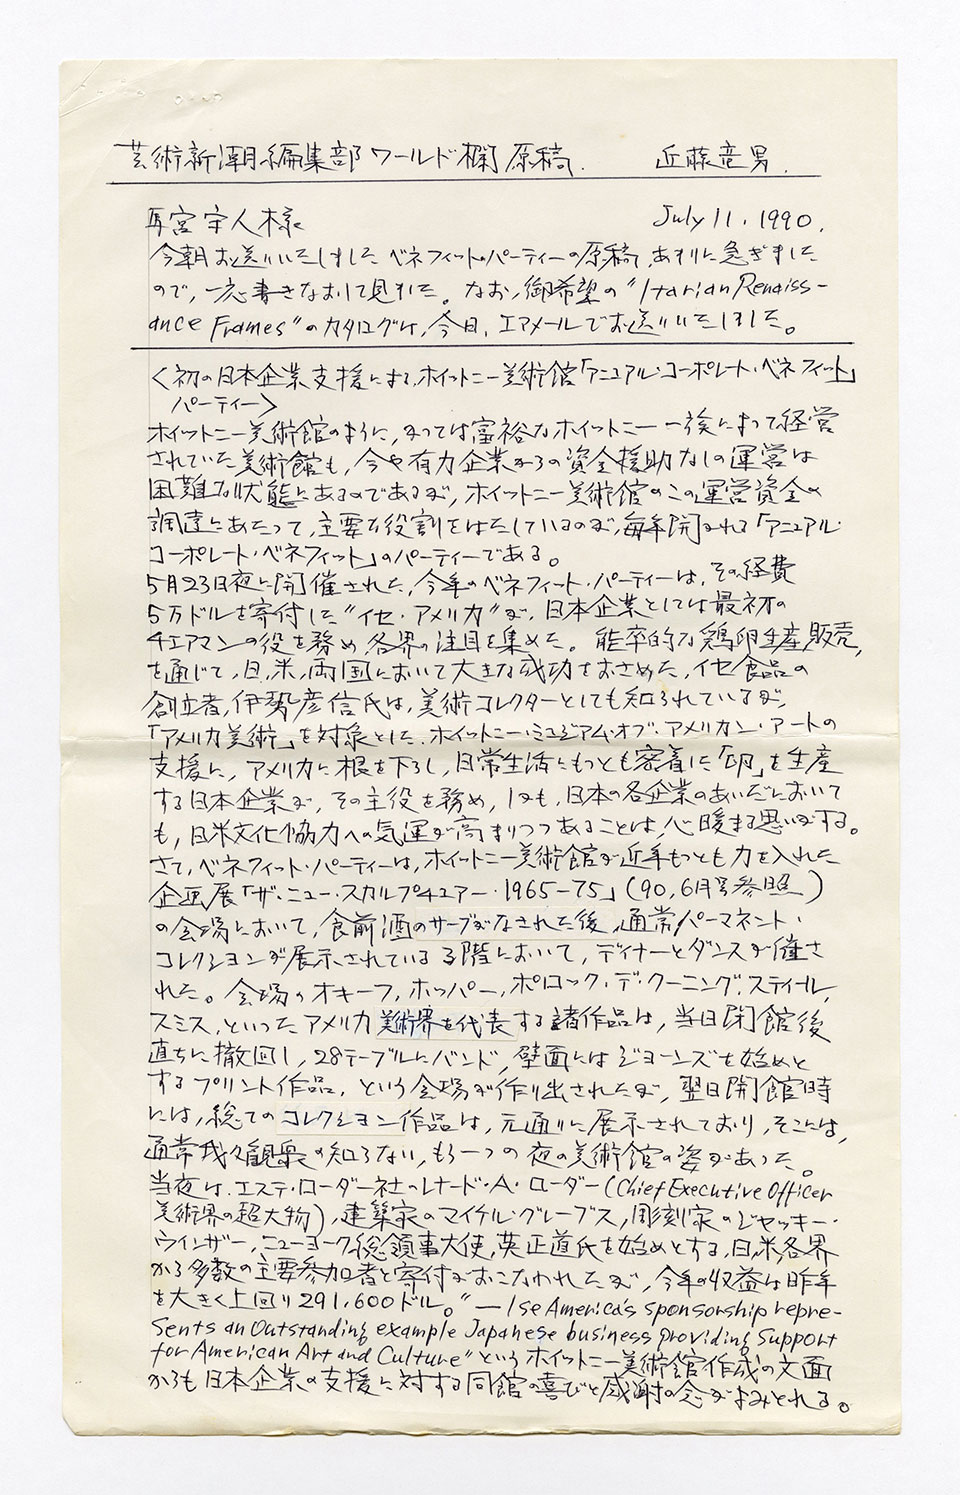 芸術新潮編集部ワールド欄原稿. 近藤竜男.
宮宇人様 July 11, 1990.
今朝お送りいたしましたベネフィット・パーティーの原稿、あまりに急ぎました
ので、一応書きなおして見ました。なお、御希望の"Itarian Renaiss-
ance Frames"のカタログは、今日、エアメールでお送りいたしました。
〈初の日本企業支援によるホイットニー美術館「アニュアル・コーポレート・ベネフィット」
パーティー〉
ホイットニー美術館のように、かつては富裕なホイットニー一族によって経営
されていた美術館も、今や有力企業からの資金援助なしの運営は
困難な状態にあるのであるが、ホイットニー美術館のこの運営資金の
調達にあたって、主要な役割をはたしているのが、毎年開かれる「アニュアル・
コーポレート・ベネフィット」のパーティーである。
5月23日夜に開催された、今年のベネフィット・パーティーは、その経費
5万ドルを寄付した"イセ・アメリカ"が、日本企業としては最初の
チェアマンの役を務め、各界の注目を集めた。能率的な鶏卵生産、販売
を通じて、日、米、両国において大きな成功をおさめた、イセ食品の
創立者、伊勢彦信氏は、美術コレクターとしても知られているが、
「アメリカ美術」を対象とした、ホイットニー・ミュジアム・オブ・アメリカン・アートの
支援に、アメリカに根を下ろし、日常生活にもっとも密着に「卵」を生産
する日本企業が、その主役を務め、しかも、日本の各企業のあいだにおいて
も、日米文化協力への気運が高まりつつあることは、心暖まる思いがする。
さて、ベネフィット・パーティーは、ホイットニー美術館が近年もっとも力を入れた
企画展「ザ・ニュー・スカルプチュアー・1965-75」(90,6月号参照)
の会場において、食前酒のサーブがなされた後、通常パーマネント・
コレクションが展示されている3階において、ディナーとダンスが催さ
れた。会場のオキーフ、ホッパー、ポロック、デ・クーニング、スティール、
スミス、といったアメリカ美術界を代表する諸作品は、当日閉館後
直ちに撤回し、28テーブルにバンド、壁面にはジョーンズを始めと
するプリント作品、という会場が作り出されたが、翌日開館時
には、総てのコレクション作品は、元通りに展示されており、そこには、
通常我々観衆の知らない、もう一つの夜の美術館の姿があった。
当夜は、エステ・ローダー社のレナード・A・ローダー(Chief Executive Officer
美術界の超大物)、建築家のマイケル・グレーブス、彫刻家のジャッキー・
ウィンザー、ニューヨーク総領事大使、英正道氏を始めとする、日、米、各界
から多数の主要参加者と寄付がおこなわれたが、今年の収益は昨年
を大きく上回り291,600ドル。"—Ise America's sponsorship repre-
sents an outstanding example Japanese business providing support
for American Art and Culture"というホイットニー美術館作成の文面
からも日本企業の支援に対する同館の喜びと感謝の念がよみとれる。